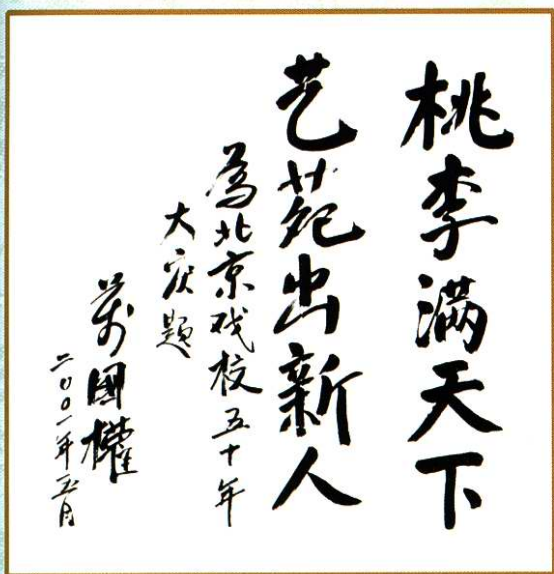 桃李满天下
艺苑出新人
为北京戏校五十年
大庆题
万國權
二〇〇一年五月